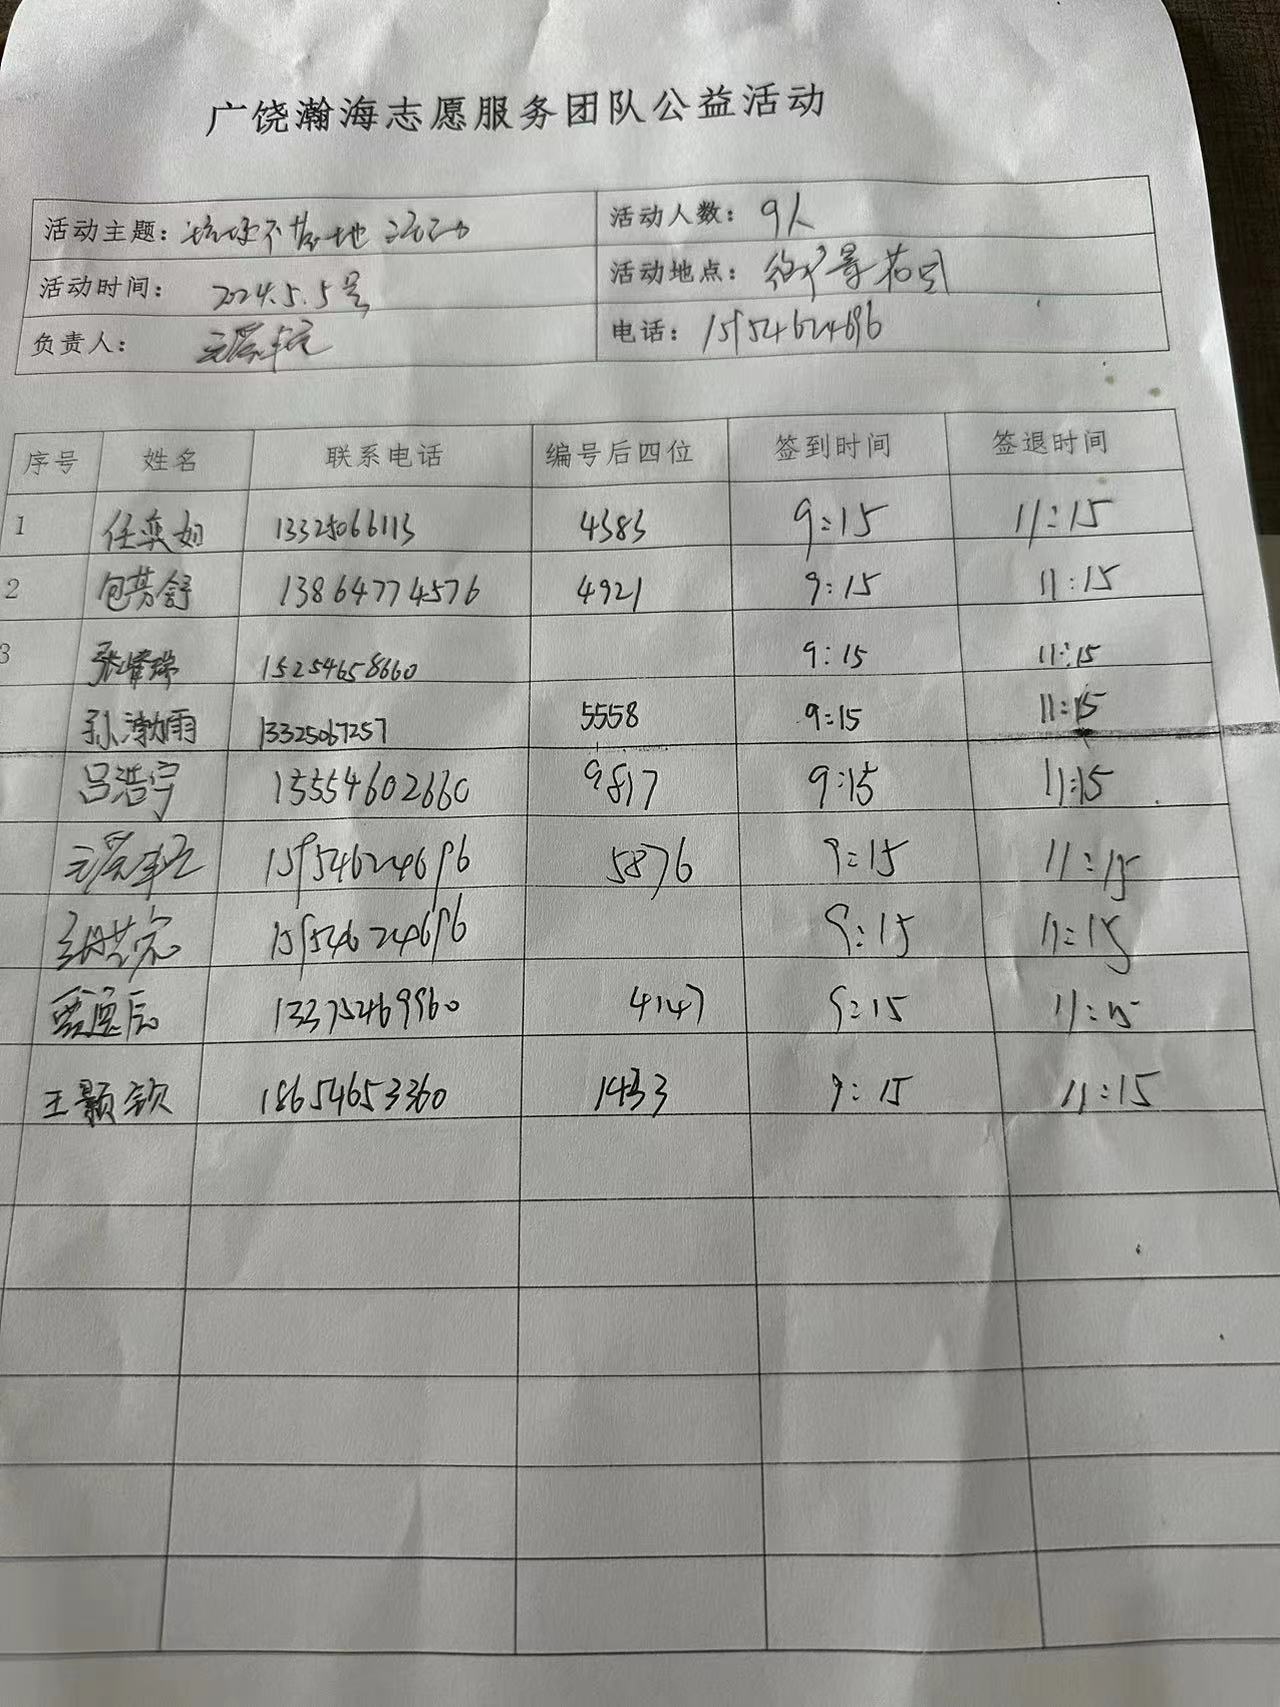 广饶瀚海志愿服务团队公益活动
活动主题：垃圾不落地活动 活动人数：9人
活动时间：2024.5.5号 活动地点：
负责人： 电话：15954624696
序号 姓名 联系电话 编号后四位 签到时间 签退时间
1 任奕如 13325066113 4383 9:15 11:15
2 包芳舒 13864774576 4921 9:15 11:15
3 张峰瑞 15254658660 9:15 11:15
孙渤雨 13325067257 5558 9:15 11:15
吕浩宇 15554602660 9817 9:15 11:15
15954624696 5876 9:15 11:15
15954624696 9:15 11:15
13375469960 4147 9:15 11:15
王颢钦 18654653360 1433 9:15 11:15